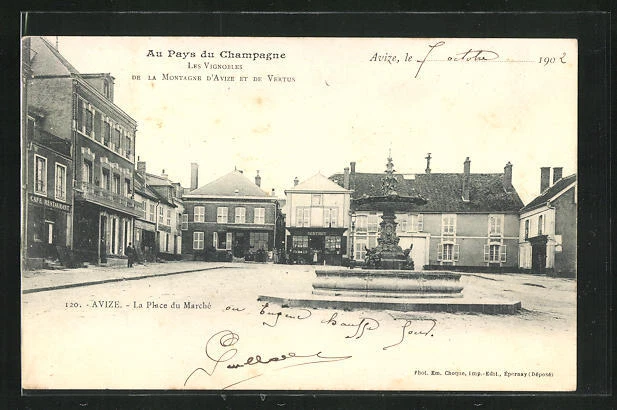 Au Pays du Champagne
Les Vignobles
de la Montagne d'Avize et de Vertus
Avize, le 7 octobre 1902
CAFE RESTAURANT
120. - AVIZE. - La Place du Marché
ou Eugene chauffe
Phot. Em. Choque, Imp.-Edit., Épernay (Déposé)